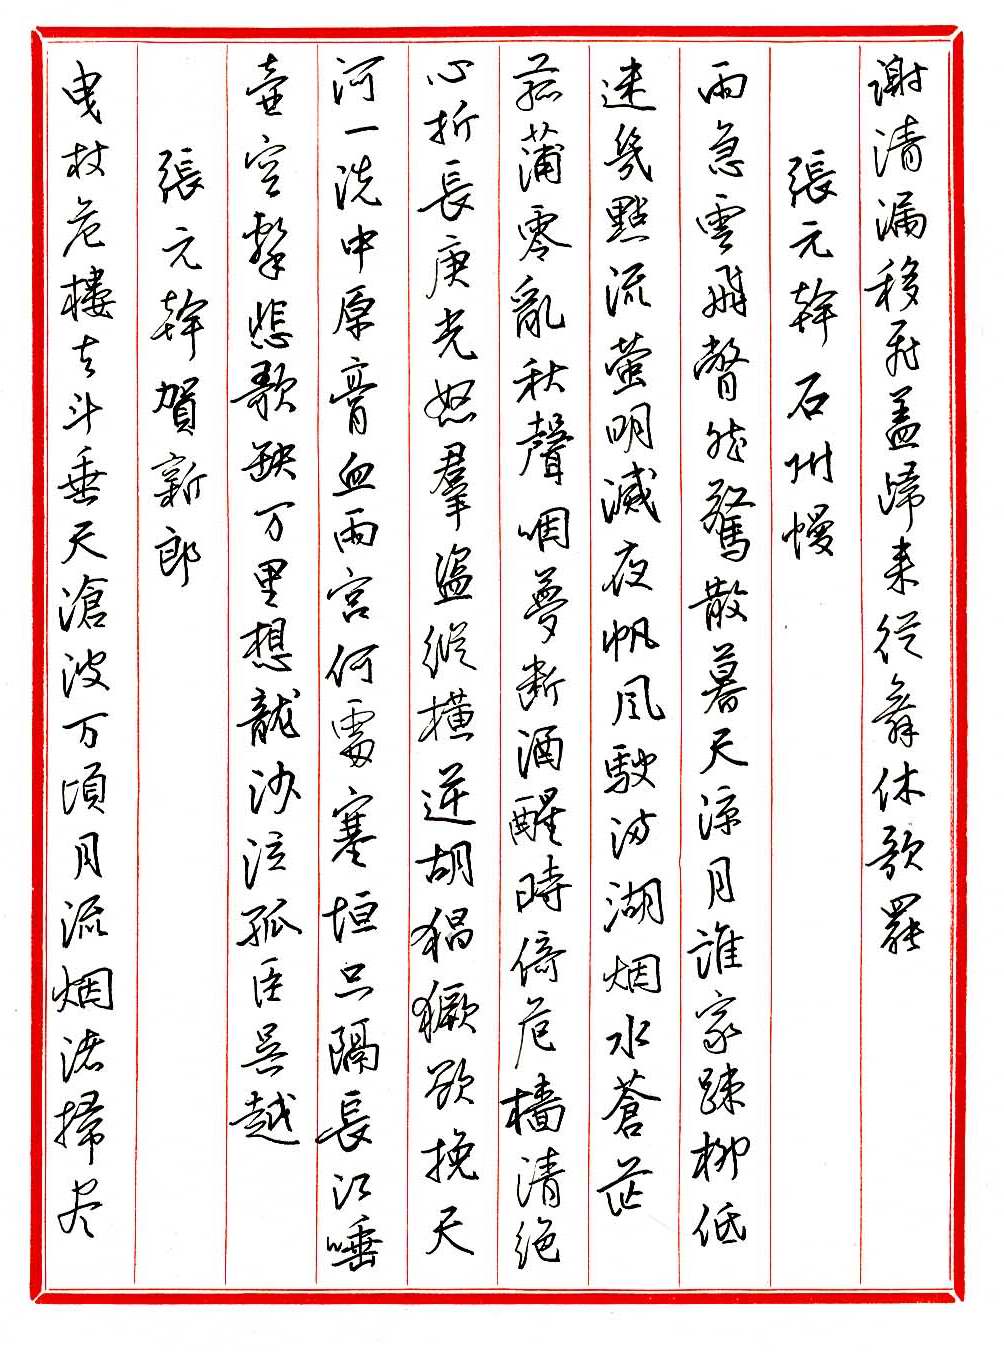 謝清漏移飛盖歸来從舞休歌罷
張元幹石州慢
雨急雲飛瞥然驚散暮天凉月誰家踈柳低
迷幾點流萤明滅夜帆風駛满湖烟水蒼茫
菰蒲零亂秋聲咽夢断酒醒時倚危樯清绝
心折長庚光怒羣盗縱橫逆胡猖獗欲挽天
河一洗中原膏血兩宫何處塞垣只隔長江唾
壺空擊悲歌缺万里想龍沙泣孤臣吴越
張元幹賀新郎
曳杖危樓去斗垂天滄波万頃月流烟渚掃尽